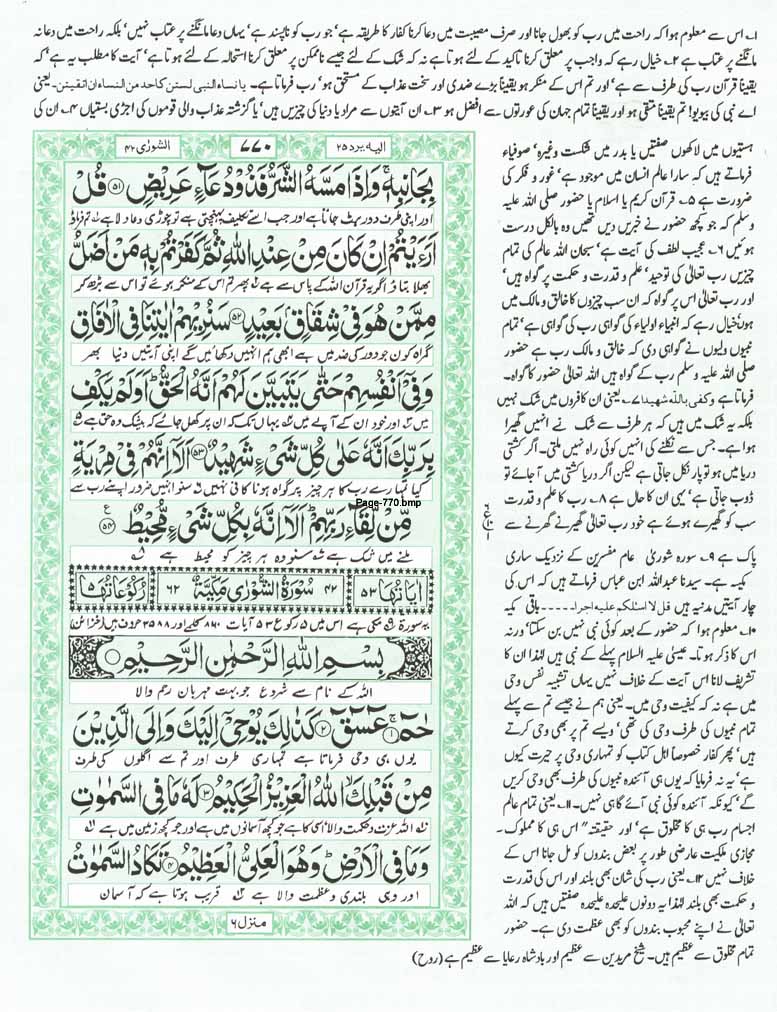 ۱؎ اس سے معلوم ہوا کہ راحت میں رب کو بھول جانا اور صرف مصیبت میں دعا کرنا کفار کا طریقہ ہے' جو رب کو ناپسند ہے' یہاں دعا مانگنے پر عتاب نہیں' بلکہ راحت میں دعا نہ
مانگنے پر عتاب ہے ۲؎ خیال رہے کہ واجب پر معلق کرنا تاکید کے لئے ہوتا ہے نہ کہ شک کے لئے جیسے ناممکن پر معلق کرنا استحالہ کے لئے ہوتا ہے' آیت کا مطلب یہ ہے' کہ
یقیناً قرآن رب کی طرف سے ہے' اور تم اس کے منکر ہو یقیناً بڑے ضدی اور سخت عذاب کے مستحق ہو' رب فرماتا ہے۔ یا نساء النبی لستن کاحد من النساء ان اتقیتن۔ یعنی
اے نبی کی بیویو! تم یقیناً متقی ہو اور یقیناً تمام جہان کی عورتوں سے افضل ہو ۳؎ ان آیتوں سے مراد یا دنیا کی چیزیں ہیں' یا گزشتہ عذاب والی قوموں کی اجڑی بستیاں ۴؎ ان کی
الیه یرد ۲۵
۷۷۰
الشورٰی ۴۲
بِجَانِبِهٖ ۚ وَ اِذَا مَسَّهُ الشَّرُّ فَذُوْ دُعَآءٍ عَرِیْضٍ ۵۱ قُلْ
اور اپنی طرف دور ہٹ جاتا ہے اور جب اسے تکلیف پہنچتی ہے تو چوڑی دعا والا ہے تم فرماؤ
اَرَءَیْتُمْ اِنْ كَانَ مِنْ عِنْدِ اللّٰهِ ثُمَّ كَفَرْتُمْ بِهٖ مَنْ اَضَلُّ
بھلا بتاؤ اگر یہ قرآن اللہ کے پاس سے ہے پھر تم اس کے منکر ہوئے تو اس سے بڑھ کر
مِمَّنْ هُوَ فِیْ شِقَاقٍۭ بَعِیْدٍ ۵۲ سَنُرِیْهِمْ اٰیٰتِنَا فِی الْاٰفَاقِ
گمراہ کون جو دور کی ضد میں ہے ابھی ہم انہیں دکھائیں گے اپنی آیتیں دنیا بھر
وَ فِیْۤ اَنْفُسِهِمْ حَتّٰى یَتَبَیَّنَ لَهُمْ اَنَّهُ الْحَقُّ ؕ اَوَ لَمْ یَكْفِ
میں اور خود ان کے آپے میں یہاں تک کہ ان پر کھل جائے کہ بیشک وہ حق ہے
بِرَبِّكَ اَنَّهٗ عَلٰى كُلِّ شَیْءٍ شَهِیْدٌ ۵۳ اَلَاۤ اِنَّهُمْ فِیْ مِرْیَةٍ
کیا تمہارے رب کا ہر چیز پر گواہ ہونا کافی نہیں سنو انہیں ضرور اپنے رب سے
Page-770.bmp
مِّنْ لِّقَآءِ رَبِّهِمْ ؕ اَلَاۤ اِنَّهٗ بِكُلِّ شَیْءٍ مُّحِیْطٌ ۵۴
ملنے میں شک ہے سنو وہ ہر چیز کو محیط ہے
اٰیاتها ۵۳
۴۲ سُوْرَةُ الشُّوْرٰى مَكِّیَّةٌ ۶۲
رکوعاتها ۵
یہ سورۃ مکی ہے اس میں ۵ رکوع ۵۳ آیات ۸۶۰ کلمے اور ۳۵۸۸ حروف ہیں (خزائن)
بِسْمِ اللّٰهِ الرَّحْمٰنِ الرَّحِیْمِ
اللہ کے نام سے شروع جو بہت مہربان رحم والا
حٰمٓ ۱ عٓسٓقٓ ۲ كَذٰلِكَ یُوْحِیْۤ اِلَیْكَ وَ اِلَى الَّذِیْنَ
یوں ہی وحی فرماتا ہے تمہاری طرف اور تم سے اگلوں کی طرف
مِنْ قَبْلِكَ ۙ اللّٰهُ الْعَزِیْزُ الْحَكِیْمُ ۳ لَهٗ مَا فِی السَّمٰوٰتِ
اللہ عزت و حکمت والا اسی کا ہے جو کچھ آسمانوں میں ہے اور جو کچھ زمین میں ہے
وَ مَا فِی الْاَرْضِ ؕ وَ هُوَ الْعَلِیُّ الْعَظِیْمُ ۴ تَكَادُ السَّمٰوٰتُ
اور وہی بلندی و عظمت والا ہے قریب ہوتا ہے کہ آسمان
منزل ۶
بستیوں میں لاکھوں صفتیں یا بدر میں شکست وغیرہ' صوفیاء
فرماتے ہیں کہ سارا عالم انسان میں موجود ہے' غور و فکر کی
ضرورت ہے ۵؎ قرآن کریم یا اسلام یا حضور صلی اللہ علیہ
وسلم کہ جو کچھ حضور نے خبریں دیں تھیں وہ بالکل درست
ہوئیں ۶؎ عجیب لطف کی آیت ہے' سبحان اللہ عالم کی تمام
چیزیں رب تعالٰی کی توحید' علم و قدرت و حکمت پر گواہ ہیں'
اور رب تعالٰی اس پر گواہ کہ ان سب چیزوں کا خالق و مالک میں
ہوں' خیال رہے کہ انبیاء اولیاء کی گواہی رب کی گواہی ہے' تمام
نبیوں ولیوں نے گواہی دی کہ خالق و مالک رب ہے حضور
صلی اللہ علیہ وسلم رب کے گواہ ہیں اللہ تعالٰی حضور کا گواہ۔
فرماتا ہے وکفی باللّٰہ شھیدا ۷؎ یعنی ان کافروں میں شک نہیں
بلکہ یہ شک میں ہیں کہ ہر طرف سے شک نے انہیں گھیرا
ہوا ہے۔ جس سے نکلنے کی انہیں کوئی راہ نہیں ملتی۔ اگر کشتی
دریا میں ہو تو پار نکل جاتی ہے لیکن اگر دریا کشتی میں آ جائے تو
ڈوب جاتی ہے' یہی ان کا حال ہے ۸؎ رب کا علم و قدرت
سب کو گھیرے ہوئے ہے خود رب تعالٰی گھیرنے گھرنے سے
پاک ہے ۹؎ سورہ شوریٰ عام مفسرین کے نزدیک ساری
مکیہ ہے۔ سیدنا عبداللہ ابن عباس فرماتے ہیں کہ اس کی
چار آیتیں مدنیہ ہیں قل لا اسئلکم علیہ اجرا۔۔۔۔۔ باقی مکیہ
۱۰؎ معلوم ہوا کہ حضور کے بعد کوئی نبی نہیں بن سکتا' ورنہ
اس کا ذکر ہوتا۔ عیسیٰ علیہ السلام پہلے کے نبی ہیں لہٰذا ان کا
تشریف لانا اس آیت کے خلاف نہیں یہاں تشبیہ نفس وحی
میں ہے نہ کہ کیفیت وحی میں۔ یعنی ہم نے جیسے تم سے پہلے
تمام نبیوں کی طرف وحی کی تھی' ویسے تم پر بھی وحی کرتے
ہیں' پھر کفار خصوصاً اہل کتاب کو تمہاری وحی پر حیرت کیوں
ہے' یہ نہ فرمایا کہ یوں ہی آئندہ نبیوں کی طرف بھی وحی کریں
گے' کیونکہ آئندہ کوئی نبی آئے گا ہی نہیں۔ ۱۱؎ یعنی تمام عالم
اجسام رب ہی کا مخلوق ہے' اور حقیقتہ" اس ہی کا مملوک۔
مجازی ملکیت عارضی طور پر بعض بندوں کو مل جانا اس کے
خلاف نہیں ۱۲؎ یعنی رب کی شان بھی بلند اور اس کی قدرت
و حکمت بھی بلند لہٰذا یہ دونوں علیحدہ علیحدہ صفتیں ہیں کہ اللہ
تعالٰی نے اپنے محبوب بندوں کو بھی عظمت دی ہے۔ حضور
تمام مخلوق سے عظیم ہیں۔ شیخ مریدین سے عظیم اور بادشاہ رعایا سے عظیم ہے (روح)